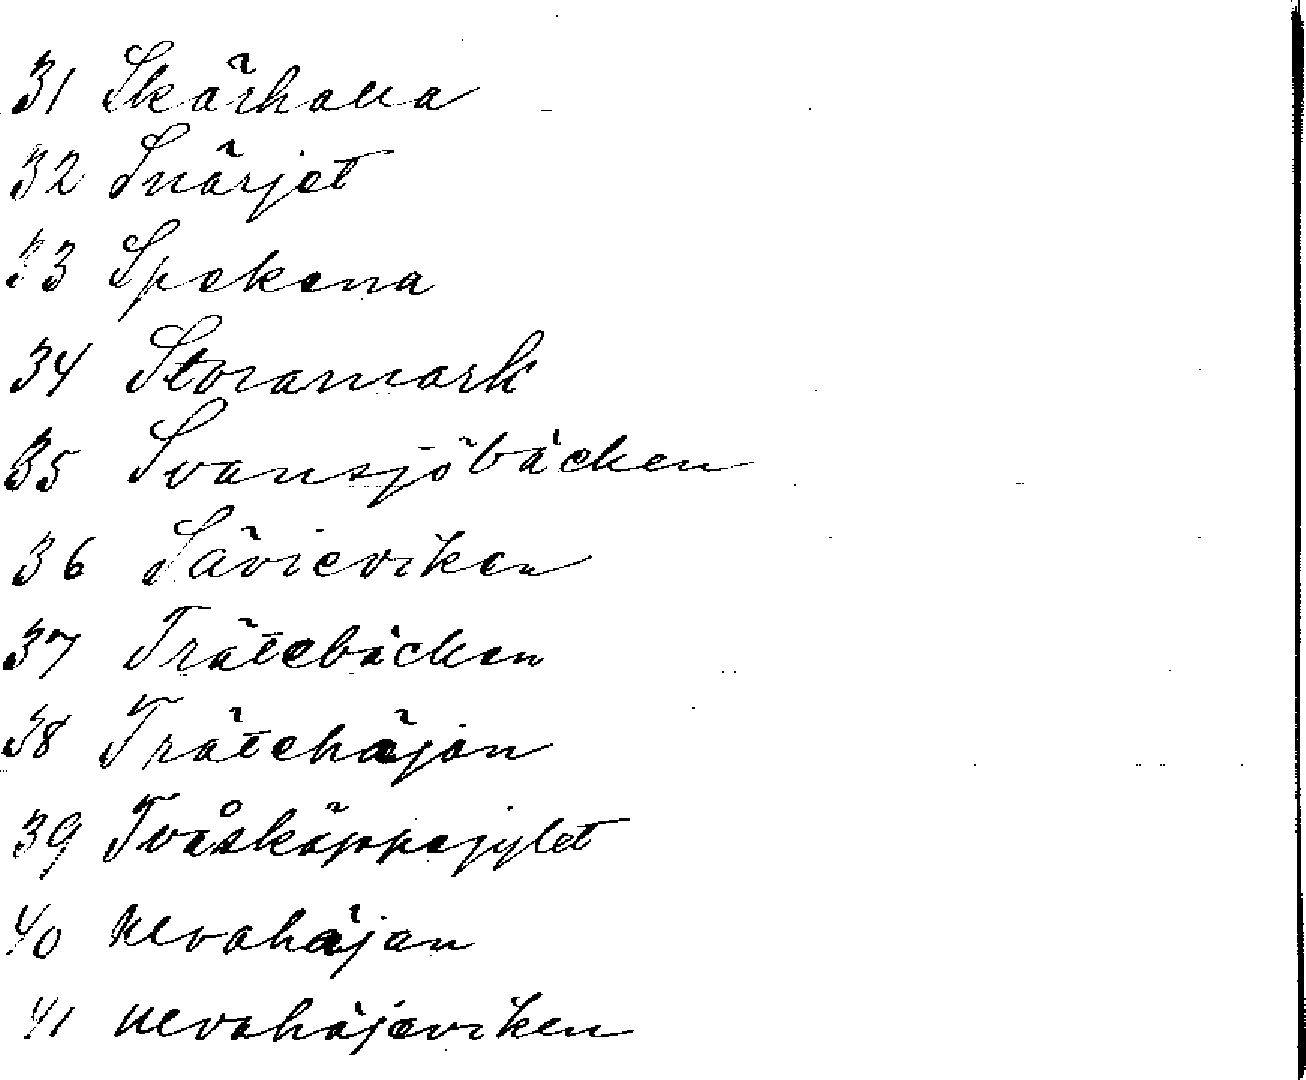 31 Skärhalla
32 Snärjet
33 Spekena
34 Storamark
35 Svansjöbäcken
36 Sävieviken
37 Trätebäcken
38 Trätehäjan
39 Tvåskäppegylet
40 Ulvahäjan
41 Ulvahäjeviken